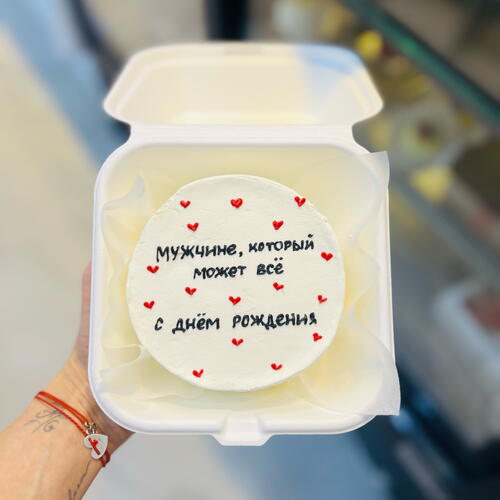 мужчине, который
может всё
с днём рождения